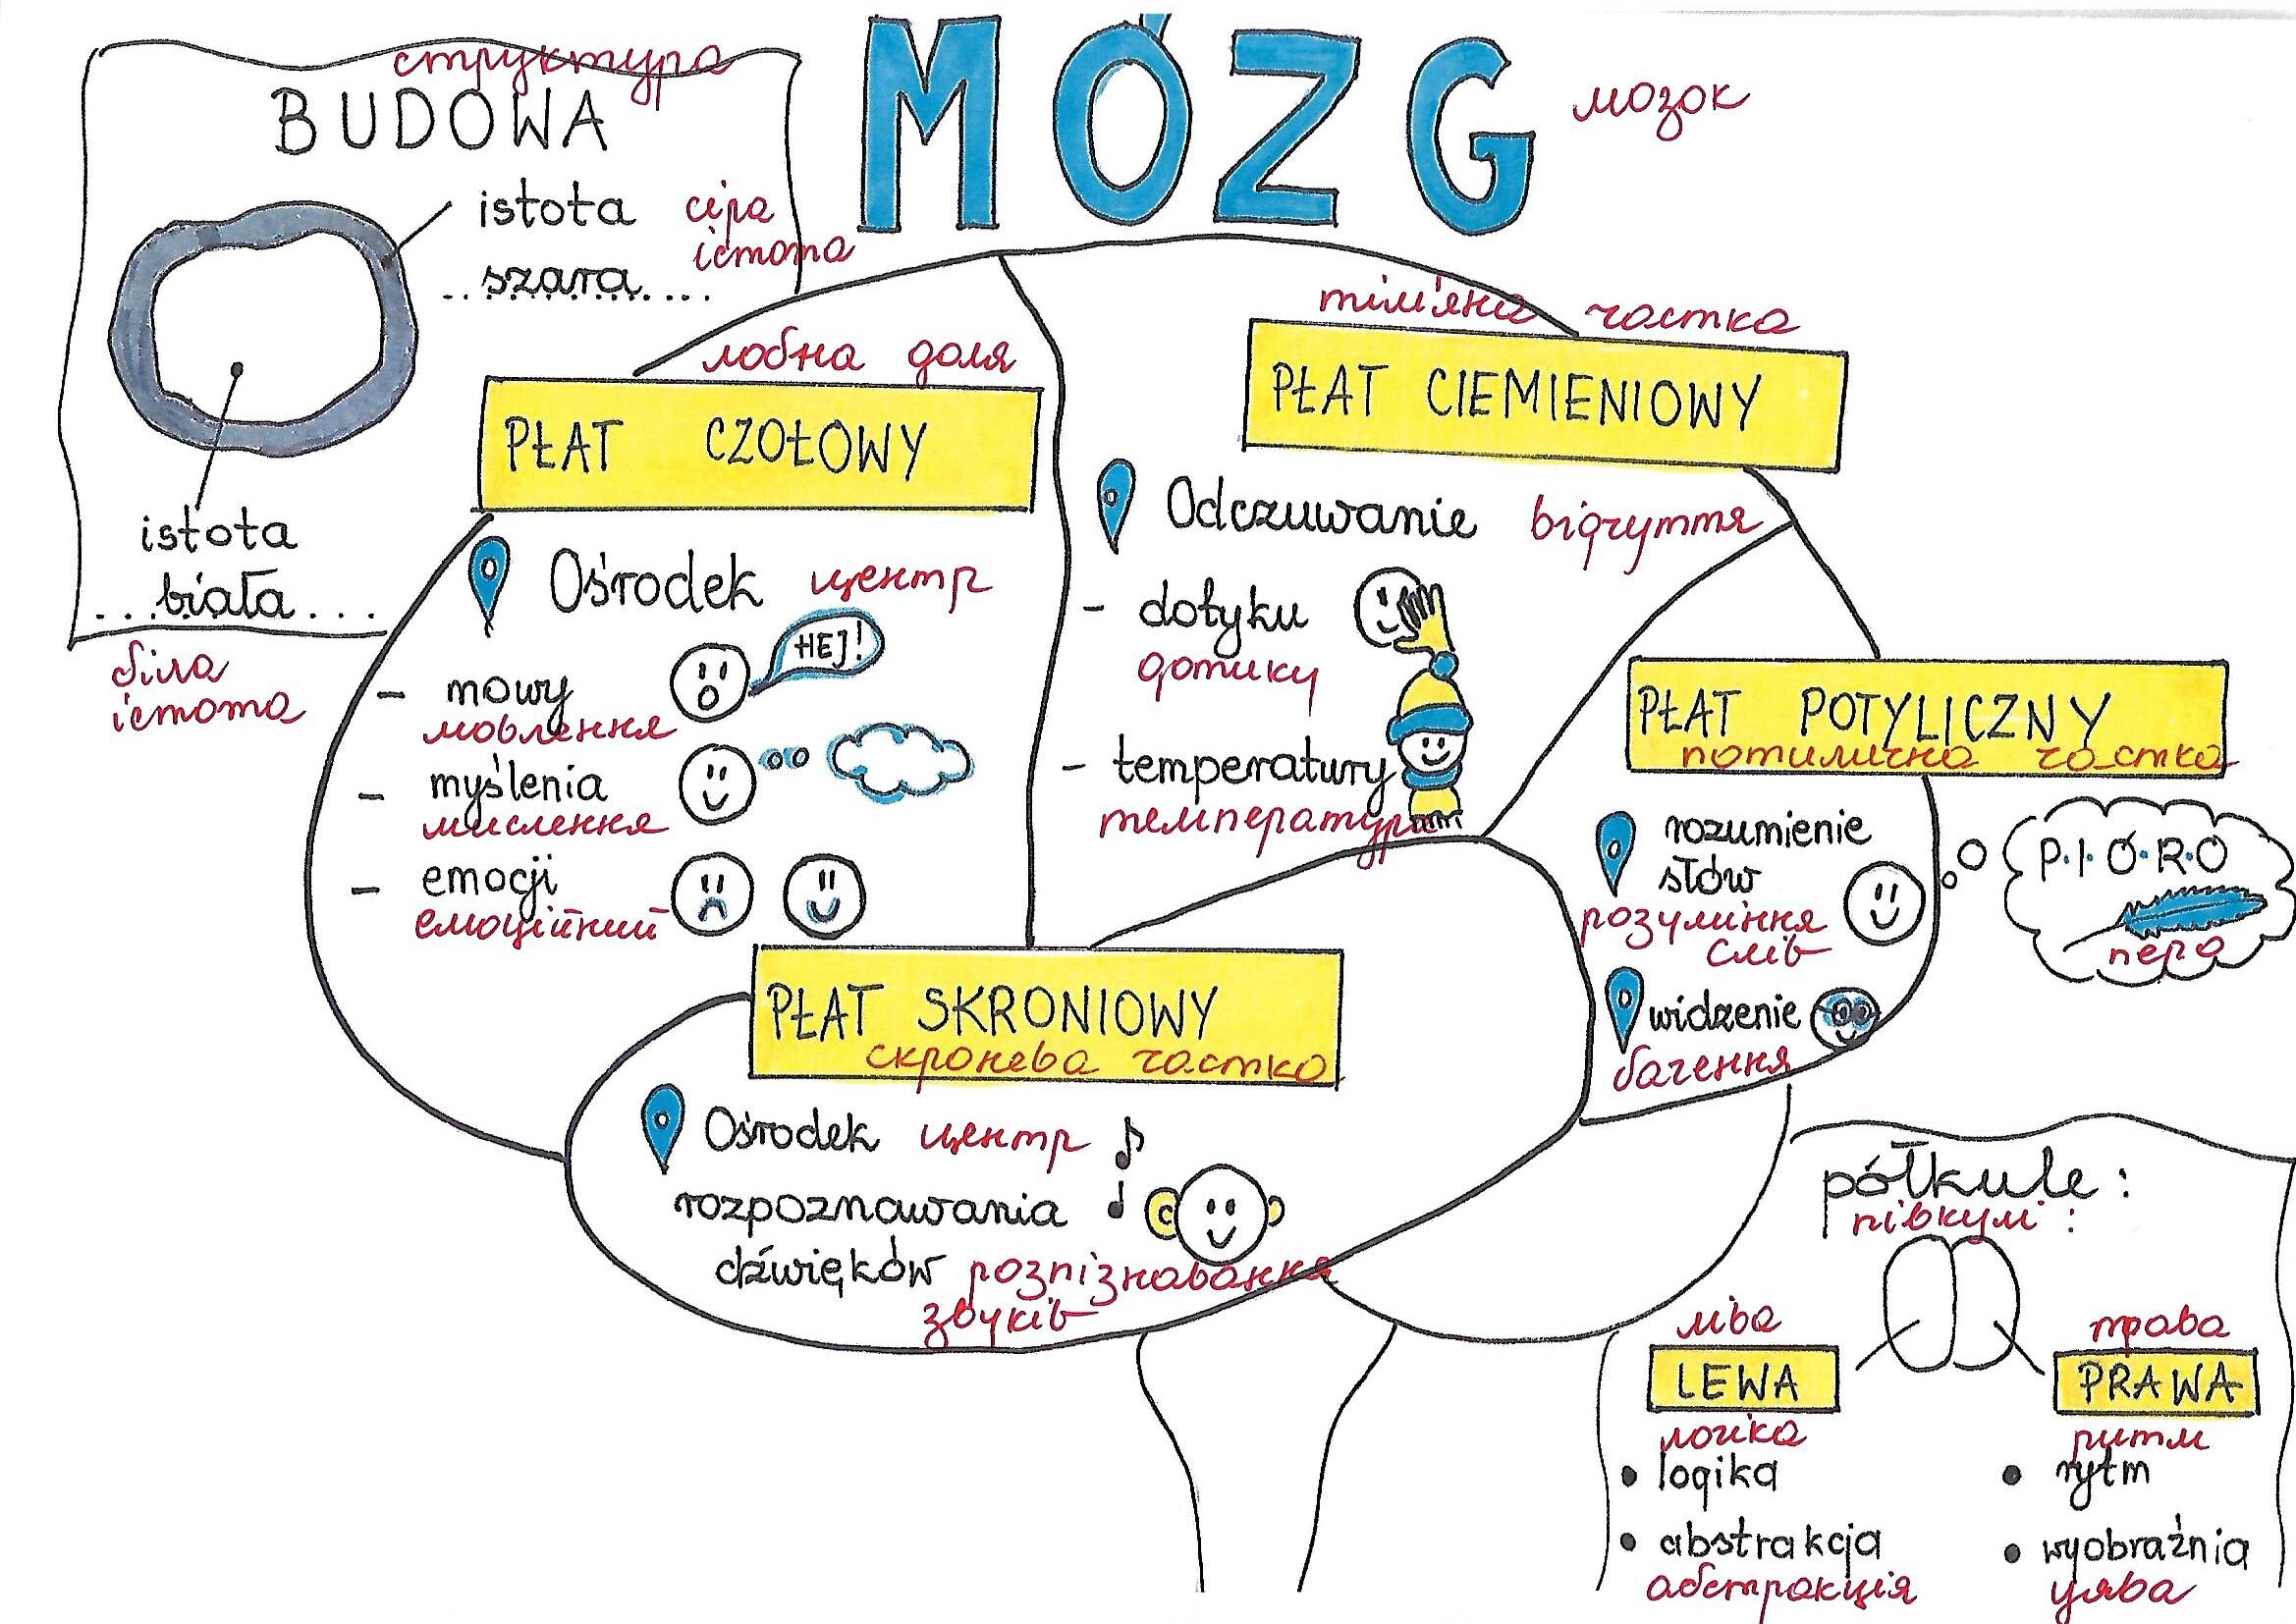 MÓZG
мозок
структура
BUDOWA
istota
szara
сіра
істота
istota
biała
біла
істота
лобна доля
PŁAT CZOŁOWY
Ośrodek центр
- mowy
мовлення
HEJ!
- myślenia
мислення
- emocji
емоційний
тім'яна частка
PŁAT CIEMIENIOWY
Odczuwanie відчуття
- dotyku
дотику
- temperatury
температури
PŁAT POTYLICZNY
потилична частка
rozumienie
słów
розуміння
слів
P.I.Ó.R.O
перо
widzenie
бачення
PŁAT SKRONIOWY
скронева частка
Ośrodek центр
rozpoznawania
dźwięków розпізнавання
звуків
półkule:
півкулі:
ліва
LEWA
логіка
• logika
• abstrakcja
абстракція
права
PRAWA
ритм
• rytm
• wyobraźnia
уява